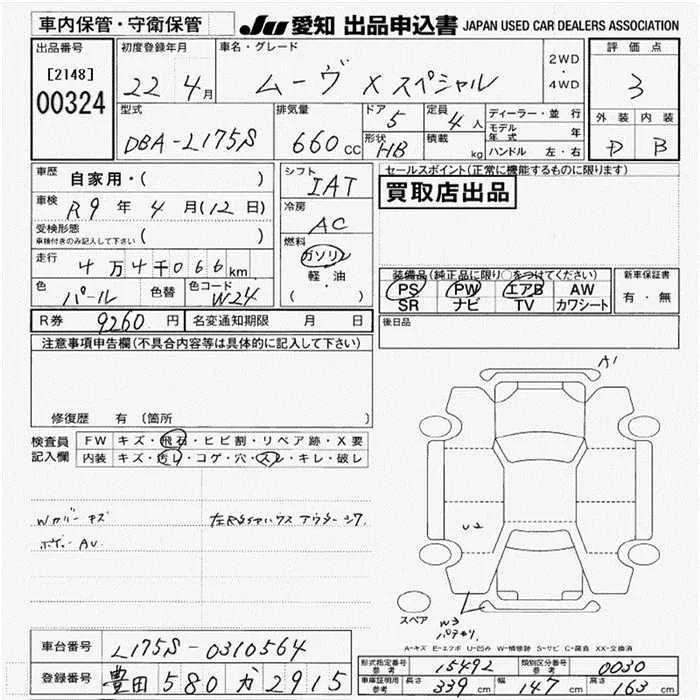 車内保管・守衛保管
JU 愛知 出品申込書 JAPAN USED CAR DEALERS ASSOCIATION
出品番号
[2148]
00324
初度登録年月
22 4月
車名・グレード
ムーヴ X スペシャル
2WD
・
4WD
評価点
3
外装 内装
D B
型式
DBA-L175S
排気量
660 CC
ドア 5
形状 HB
定員 4人
積載 kg
ディーラー・並行
モデル年式 年
ハンドル 左・右
車歴 自家用・( )
車検 R9年 4月(12日)
受検形態
車検付きのみ記入して下さい ( )
走行 4万4千066km
色 パール 色替 色コード W24
シフト
IAT
冷房
AC
燃料
ガソリン
軽・油
( )
セールスポイント(正常に機能するものに限ります)
買取店出品
装備品(純正品に限り○をつけてください)
PS PW エアB AW
SR ナビ TV カワシート
新車保証書
有・無
R券 9260円 名変通知期限 月 日
後日品
注意事項申告欄(不具合内容等は具体的に記入して下さい)
修復歴 有 (箇所 )
検査員
記入欄
FW キズ・飛石・ヒビ割・リペア跡・X要
内装 キズ・汚レ・コゲ・穴・スレ・キレ・破レ
Wカバーキズ
ボディーAU
アウターシワ
A1
U2
W3
スペア
A-キズ E-エクボ U-凹み W-補修跡 S-サビ C-腐食 XX-交換済
車台番号 L175S-0310564
登録番号 豊田 580 か 2915
形式指定番号 参考 15492 類別区分番号 参考 0030
車庫証明用 参考 長さ 339 cm 幅 147 cm 高さ 163 cm